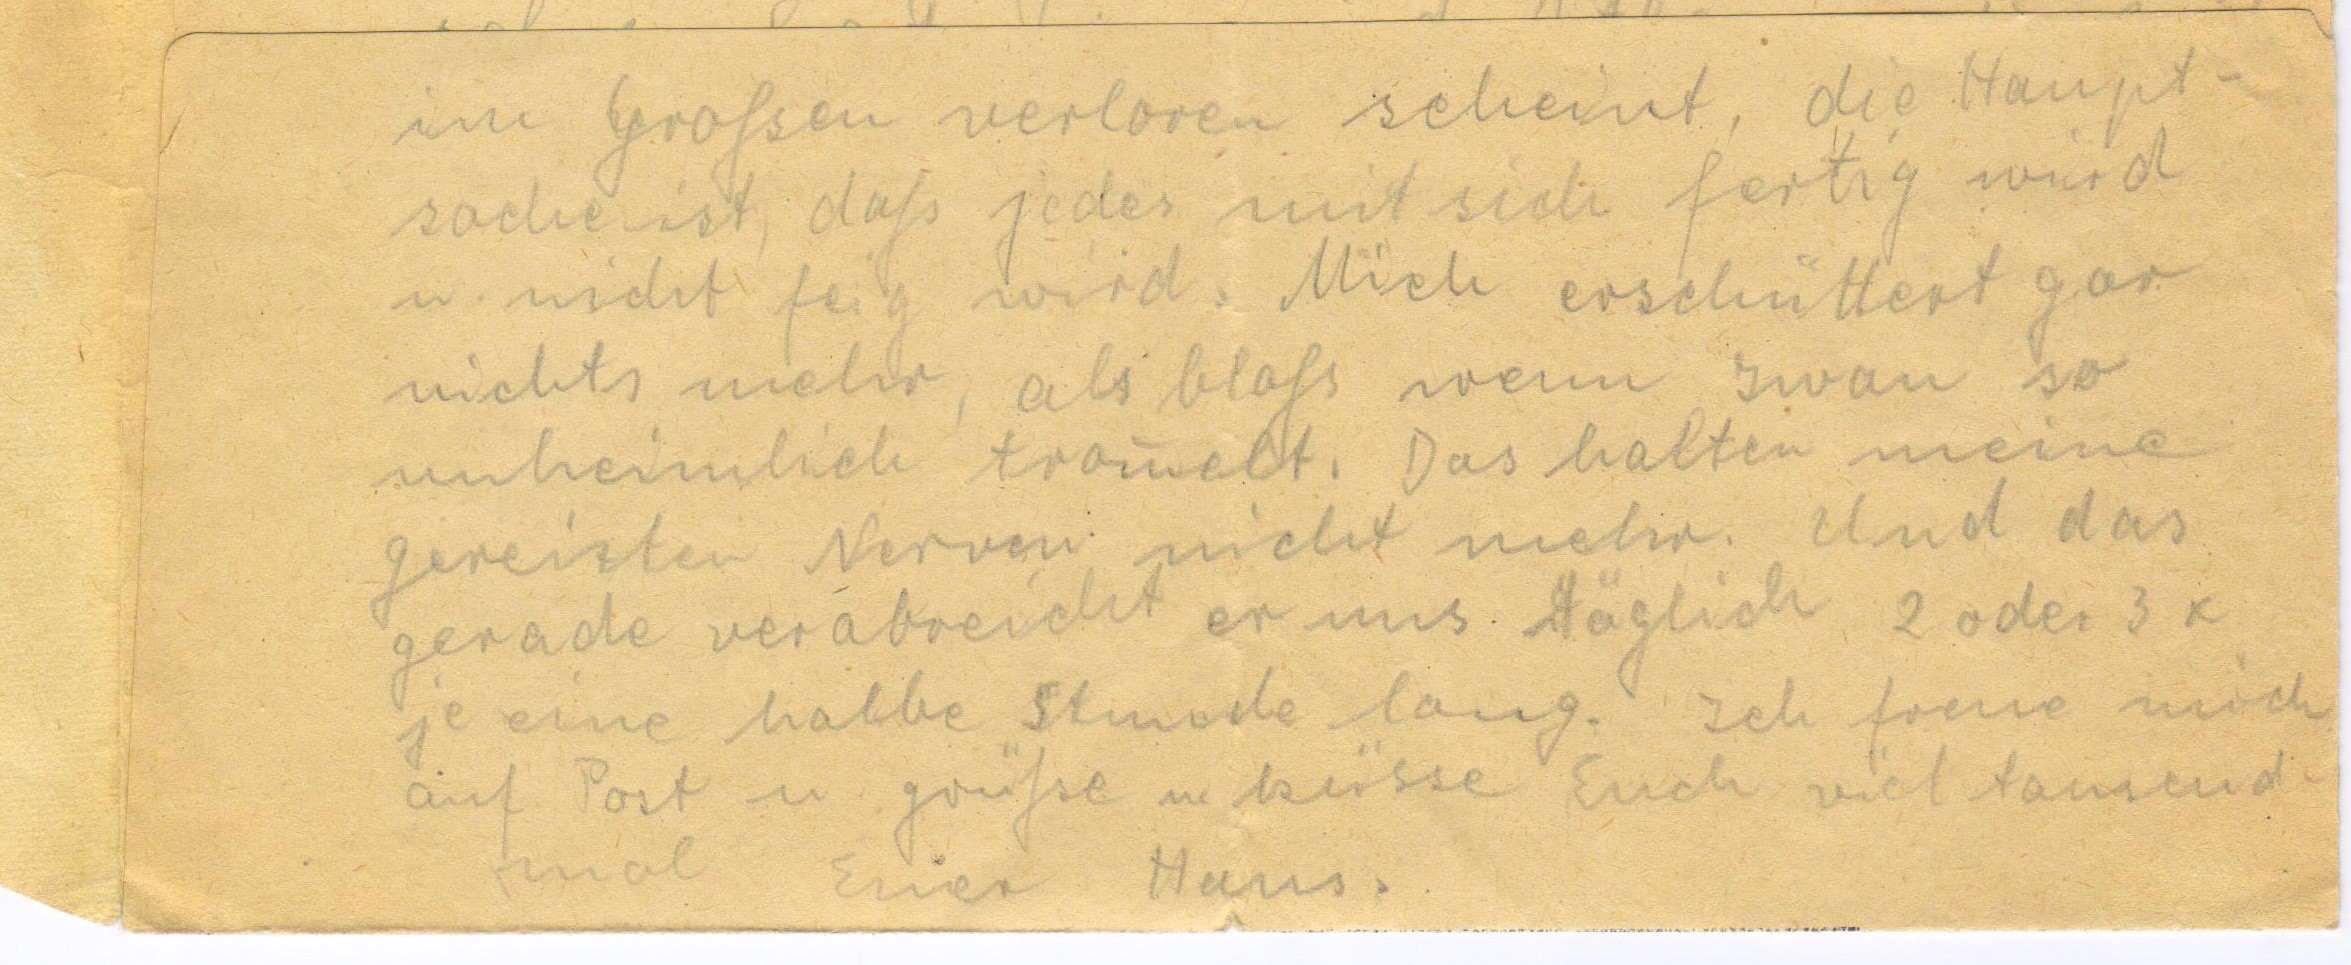 im Großsen verloren scheint, die Haupt-
sache ist, daß jedes mit sich fertig wird
u. nicht feig wird. Mich erschüttert gar
nichts mehr, als bloß wenn Iwan so
unheimlich trom̅elt. Das halten meine
gereisten Nerven nicht mehr. Und das
gerade verabreicht er uns täglich 2 oder 3 x
je eine halbe Stunde lang. Ich freue mich
auf Post u. grüße u küsse Euch viel tausend-
mal Euer Hans.